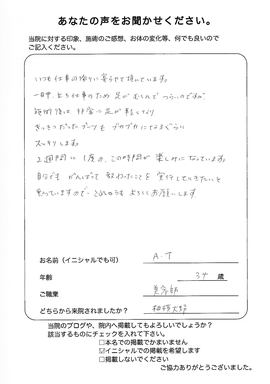 あなたの声をお聞かせください。
当院に対する印象、施術のご感想、お体の変化等、何でも良いので
ご記入ください。
いつも仕事の帰りに寄らせて頂いています。
一日中、立ち仕事のため 足が むくんで つらいのですが
施術後は 非常に 足が 軽くなり
きつきつだったブーツも ブカブカに なるぐらい
スッキリします。
2週間に 1度の、この時間が 楽しみに なっています。
自分でも がんばって 教わったことを 実行して いきたいと
思っていますので、これからも よろしくお願いします。
お名前（イニシャルでも可） A.T
年齢 34 歳
ご職業 美容師
どちらから来院されましたか？ 相模大野
当院のブログや、院内へ掲載してもよろしいでしょうか？
該当するものにチェックを入れて下さい。
□本名での掲載でかまいません
☑イニシャルでの掲載を希望します
□掲載しないでください
ご協力ありがとうございました。